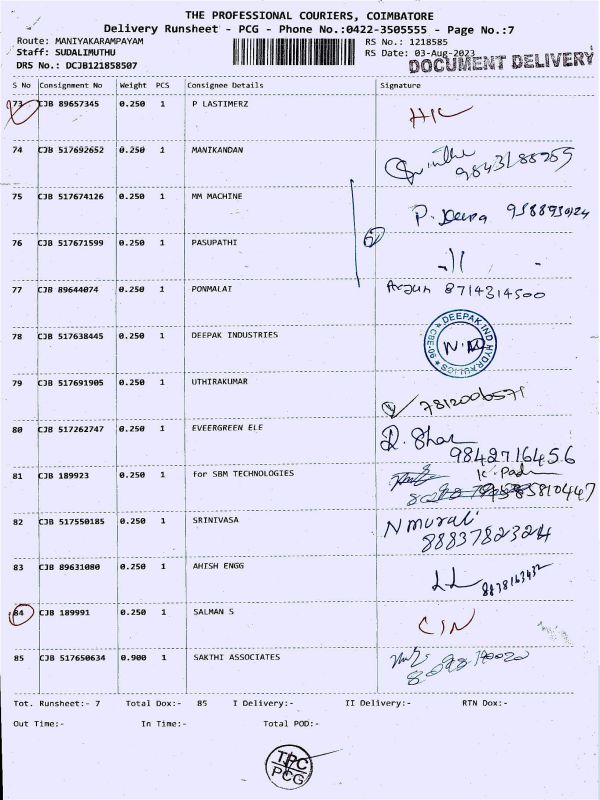 THE PROFESSIONAL COURIERS, COIMBATORE
Delivery Runsheet - PCG - Phone No.:0422-3505555 - Page No.:7
Route: MANIYAKARAMPAYAM RS No.: 1218585
Staff: SUDALIMUTHU RS Date: 03-Aug-2023
DRS No.: DCJB121858507 DOCUMENT DELIVERY
S No Consignment No Weight PCS Consignee Details Signature
73 CJB 89657345 0.250 1 P LASTIMERZ
74 CJB 517692652 0.250 1 MANIKANDAN
75 CJB 517674126 0.250 1 MM MACHINE
76 CJB 517671599 0.250 1 PASUPATHI
77 CJB 89644074 0.250 1 PONMALAI Arjun 8714314500
78 CJB 517638445 1 0.250 DEEPAK INDUSTRIES DEEPAK IND HYDRAULICS CBE-06
79 CJB 517691905 0.250 1 UTHIRAKUMAR 7812006571
80 CJB 517262747 0.250 1 EVEERGREEN ELE 9842716456
81 CJB 189923 0.250 1 for SBM TECHNOLOGIES
82 CJB 517550185 0.250 1 SRINIVASA N murali 8883782324
83 CJB 89631080 0.250 1 AHISH ENGG
84 CJB 189991 0.250 1 SALMAN S
85 CJB 517650634 0.900 1 SAKTHI ASSOCIATES
Tot. Runsheet:- 7 Total Dox:- 85 I Delivery:- II Delivery:- RTN Dox:-
Out Time:- In Time:- Total POD:-
TPC
PCG